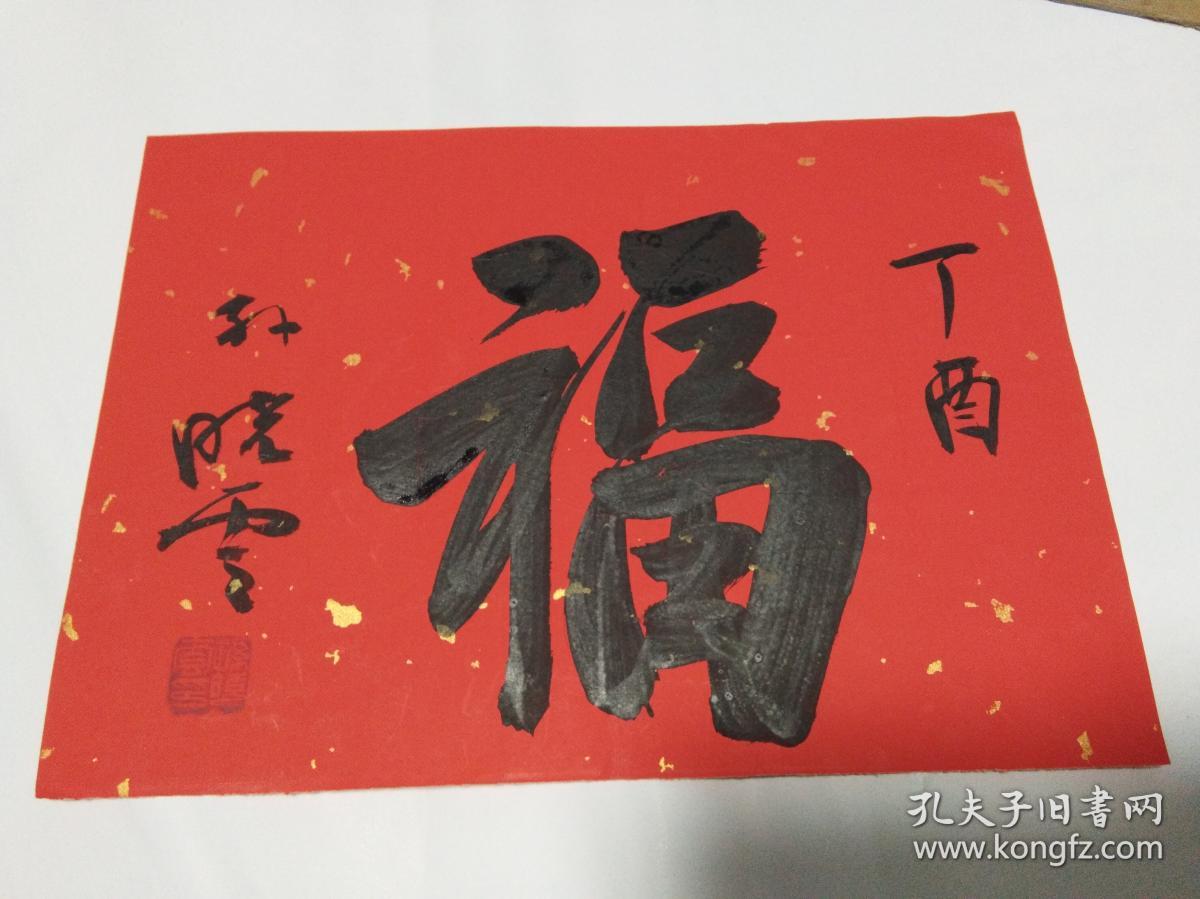 丁酉
福
孙晓云
孔夫子旧书网
www.kongfz.com